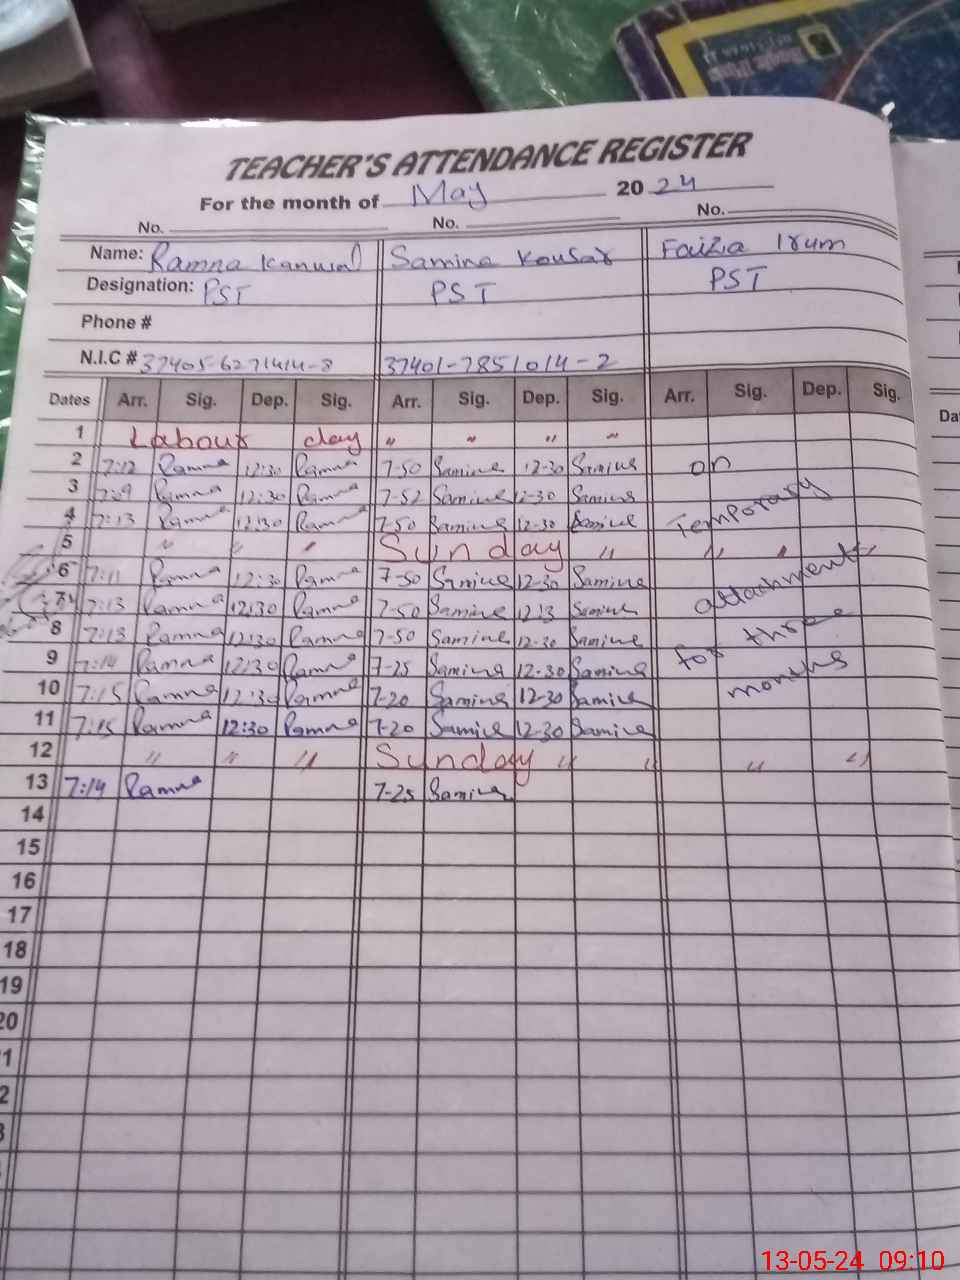 TEACHER'S ATTENDANCE REGISTER
For the month of May 20 24
No. No. No.
Name: Ramna Kanwal Samina Kousar Faiza Irum
Designation: PST PST PST
Phone #
N.I.C # 37405-6271414-8 37401-7851014-2
Dates Arr. Sig. Dep. Sig. Arr. Sig. Dep. Sig. Arr. Sig. Dep. Sig.
1 Labour day " " " "
2 7:12 Ramna 12:30 Ramna 7-50 Samina 12-30 Samina on
3 7:09 Ramna 12:30 Ramna 7-52 Samina 12-30 Samina Temporary
4 7:13 Ramna 12:30 Ramna 7-50 Samina 12-30 Samina
5 " " " Sunday " " " "
6 7:11 Ramna 12:30 Ramna 7-50 Samina 12-30 Samina attachment
7 7:13 Ramna 12:30 Ramna 7-50 Samina 12-13 Samina
8 7:13 Ramna 12:30 Ramna 7-50 Samina 12-30 Samina for three
9 7:14 Ramna 12:30 Ramna 7-25 Samina 12-30 Samina months
10 7:15 Ramna 12:30 Ramna 7-20 Samina 12-30 Samina
11 7:15 Ramna 12:30 Ramna 7-20 Samina 12-30 Samina
12 " " " Sunday " " " "
13 7:14 Ramna 7-25 Samina
14
15
16
17
18
19
20
1
2
3
13-05-24 09:10